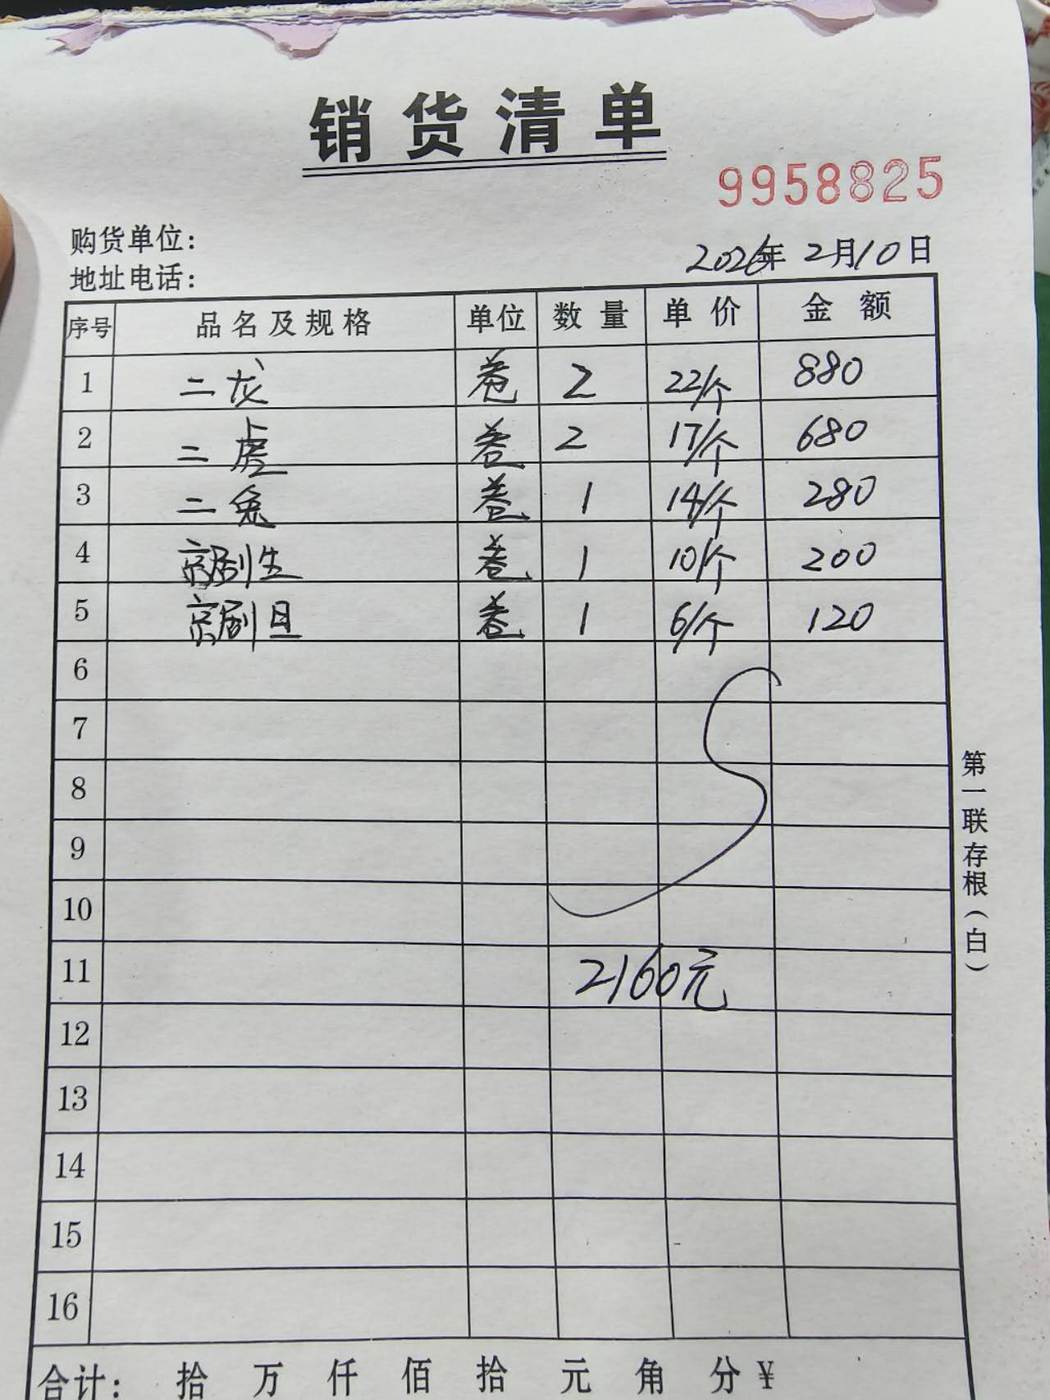 销货清单
9958825
购货单位：
2026年 2月10日
地址电话：
序号 品名及规格 单位 数量 单价 金额
1 二龙 卷 2 22/个 880
2 二虎 卷 2 17/个 680
3 二兔 卷 1 14/个 280
4 京剧生 卷 1 10/个 200
5 京剧旦 卷 1 6/个 120
6
7
8
9
10
11 2160元
12
13
14
15
16
合计： 拾 万 仟 佰 拾 元 角 分 ¥
第一联存根（白）